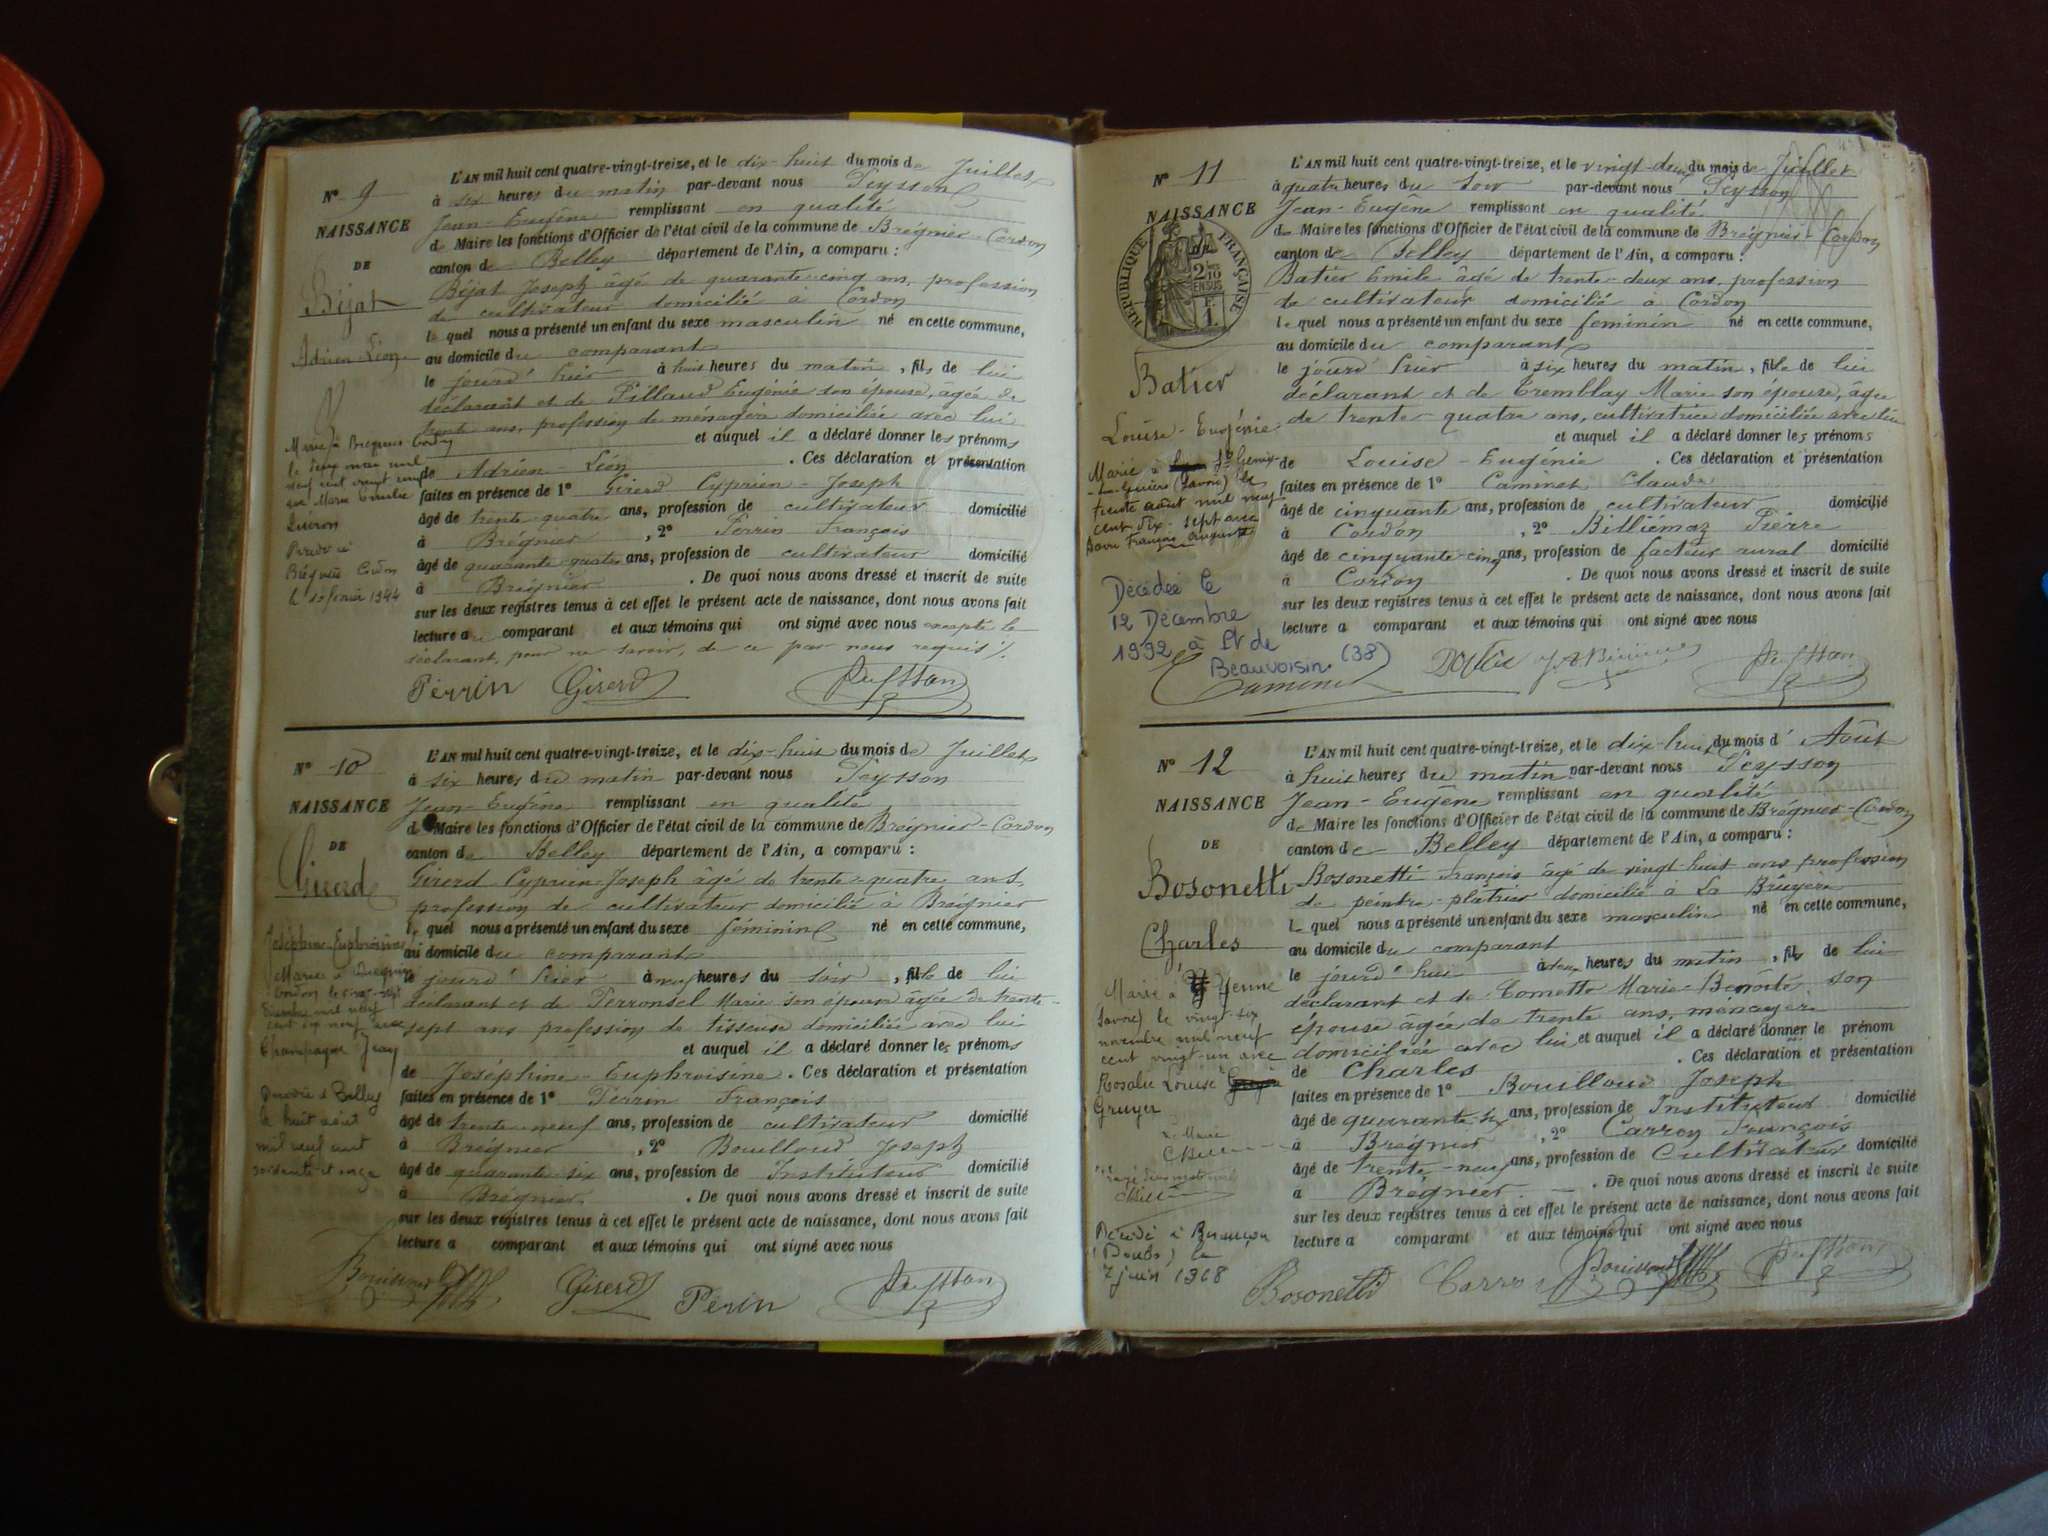 N° 9
NAISSANCE
DE
Béjat
Adrien Léon
Marié à Bregnier Cordon
le deux mai mil
neuf cent vingt
Marie Emilie
Décédé à
Brégnier Cordon
le 10 février 1944
L'AN mil huit cent quatre-vingt-treize, et le dix-huit du mois de Juillet
à six heures du matin par-devant nous Peysson
Jean-Eugène remplissant en qualité
de Maire les fonctions d'Officier de l'état civil de la commune de Brégnier-Cordon
canton de Belley département de l'Ain, a comparu :
Béjat Joseph âgé de quarante-cinq ans, profession
de cultivateur domicilié à Cordon
lequel nous a présenté un enfant du sexe masculin né en cette commune,
au domicile du comparant
le jourd'hier à huit heures du matin, fils de lui
déclarant et de Pillaud Eugénie son épouse, âgée de
trente ans, profession de ménagère domiciliée avec lui
et auquel il a déclaré donner les prénoms
de Adrien-Léon. Ces déclaration et présentation
faites en présence de 1° Girerd Cyprien-Joseph
âgé de trente-quatre ans, profession de cultivateur domicilié
à Brégnier, 2° Perrin François
âgé de quarante-quatre ans, profession de cultivateur domicilié
à Brégnier. De quoi nous avons dressé et inscrit de suite
sur les deux registres tenus à cet effet le présent acte de naissance, dont nous avons fait
lecture au comparant et aux témoins qui ont signé avec nous excepté le
déclarant, pour ne savoir, de ce par nous requis /.
Perrin Girerd Peysson
N° 10
NAISSANCE
DE
Girerd
Joséphine-Euphroisine
Mariée à Bregnier
Cordon le vingt-sept
mil neuf
cent dix neuf avec
Champagne Jean
Décédée à Belley
le huit août
mil neuf cent
soixante et onze
L'AN mil huit cent quatre-vingt-treize, et le dix-huit du mois de Juillet
à six heures du matin par-devant nous Peysson
Jean-Eugène remplissant en qualité
de Maire les fonctions d'Officier de l'état civil de la commune de Brégnier-Cordon
canton de Belley département de l'Ain, a comparu :
Girerd Cyprien-Joseph âgé de trente-quatre ans,
profession de cultivateur domicilié à Brégnier
lequel nous a présenté un enfant du sexe féminin né en cette commune,
au domicile du comparant
le jourd'hier à neuf heures du soir, fille de lui
déclarant et de Perronsel Marie son épouse âgée de trente-
sept ans profession de tisseuse domiciliée avec lui
et auquel il a déclaré donner les prénoms
de Joséphine-Euphroisine. Ces déclaration et présentation
faites en présence de 1° Perrin François
âgé de trente-neuf ans, profession de cultivateur domicilié
à Brégnier, 2° Bouilloud Joseph
âgé de quarante-six ans, profession de Instituteur domicilié
à Brégnier. De quoi nous avons dressé et inscrit de suite
sur les deux registres tenus à cet effet le présent acte de naissance, dont nous avons fait
lecture a comparant et aux témoins qui ont signé avec nous
Bouilloud Girerd Perin Peysson
N° 11
NAISSANCE
RÉPUBLIQUE FRANÇAISE
2/10
EN SUS
1 F.
Batier
Louise-Eugénie
Mariée à St Genix-
sur-Guiers (Savoie) le
trente août mil neuf
cent dix-sept avec
François Auguste
Décédée le
12 Décembre
1992 à Pt de
Beauvoisin (38)
L'AN mil huit cent quatre-vingt-treize, et le vingt-deux du mois de Juillet
à quatre heures du soir par-devant nous Peysson
Jean-Eugène remplissant en qualité
de Maire les fonctions d'Officier de l'état civil de la commune de Brégnier-Cordon
canton de Belley département de l'Ain, a comparu :
Batier Emile âgé de trente-deux ans, profession
de cultivateur domicilié à Cordon
lequel nous a présenté un enfant du sexe féminin né en cette commune,
au domicile du comparant
le jourd'hier à six heures du matin, fille de lui
déclarant et de Tremblay Marie son épouse, âgée
de trente-quatre ans, cultivatrice domiciliée avec lui
et auquel il a déclaré donner les prénoms
de Louise-Eugénie. Ces déclaration et présentation
faites en présence de 1° Caminet Claude
âgé de cinquante ans, profession de cultivateur domicilié
à Cordon, 2° Billiémaz Pierre
âgé de cinquante-cinq ans, profession de facteur rural domicilié
à Cordon. De quoi nous avons dressé et inscrit de suite
sur les deux registres tenus à cet effet le présent acte de naissance, dont nous avons fait
lecture a comparant et aux témoins qui ont signé avec nous
Caminet Peysson
N° 12
NAISSANCE
DE
Bosonetti
Charles
Marié à Yenne
(Savoie) le vingt-six
novembre mil neuf
cent vingt-un avec
Rosalie Louise
Gruyer
Le Maire
Décédé à Besançon
(Doubs) le
7 juin 1968
L'AN mil huit cent quatre-vingt-treize, et le dix-huit du mois d'Août
à huit heures du matin par-devant nous Peysson
Jean-Eugène remplissant en qualité
de Maire les fonctions d'Officier de l'état civil de la commune de Brégnier-Cordon
canton de Belley département de l'Ain, a comparu :
Bosonetti François âgé de vingt-huit ans profession
de peintre-plâtrier domicilié à La Bruyère
lequel nous a présenté un enfant du sexe masculin né en cette commune,
au domicile du comparant
le jourd'hui à deux heures du matin, fils de lui
déclarant et de Tometto Marie-Benoîte son
épouse âgée de trente ans, ménagère
domiciliée avec lui et auquel il a déclaré donner le prénom
de Charles. Ces déclaration et présentation
faites en présence de 1° Bouilloud Joseph
âgé de quarante-six ans, profession de Instituteur domicilié
à Brégnier, 2° Carron François
âgé de trente-neuf ans, profession de Cultivateur domicilié
à Brégnier. De quoi nous avons dressé et inscrit de suite
sur les deux registres tenus à cet effet le présent acte de naissance, dont nous avons fait
lecture a comparant et aux témoins qui ont signé avec nous
Bosonetti Carron Bouilloud Peysson